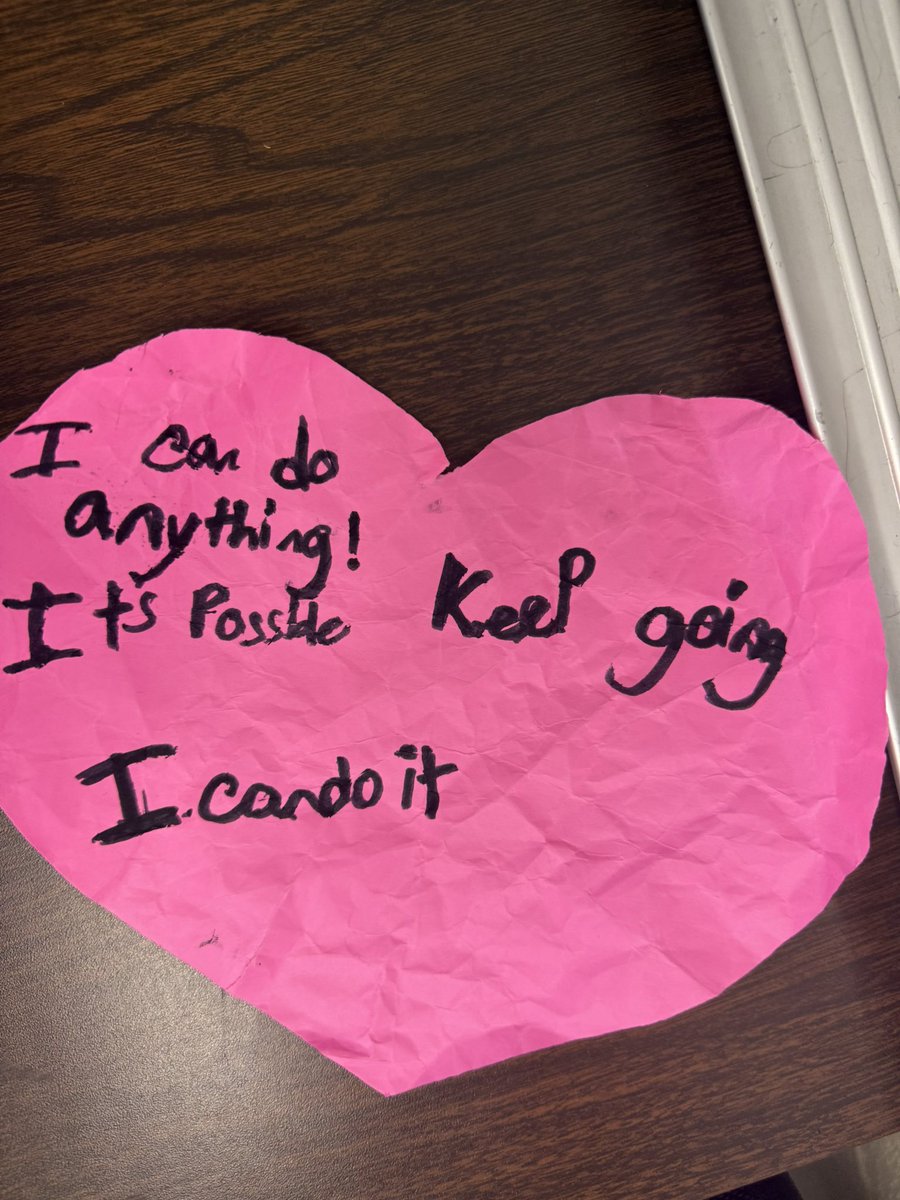 I can do
anything!
It's Possible
Keep going
I can do it